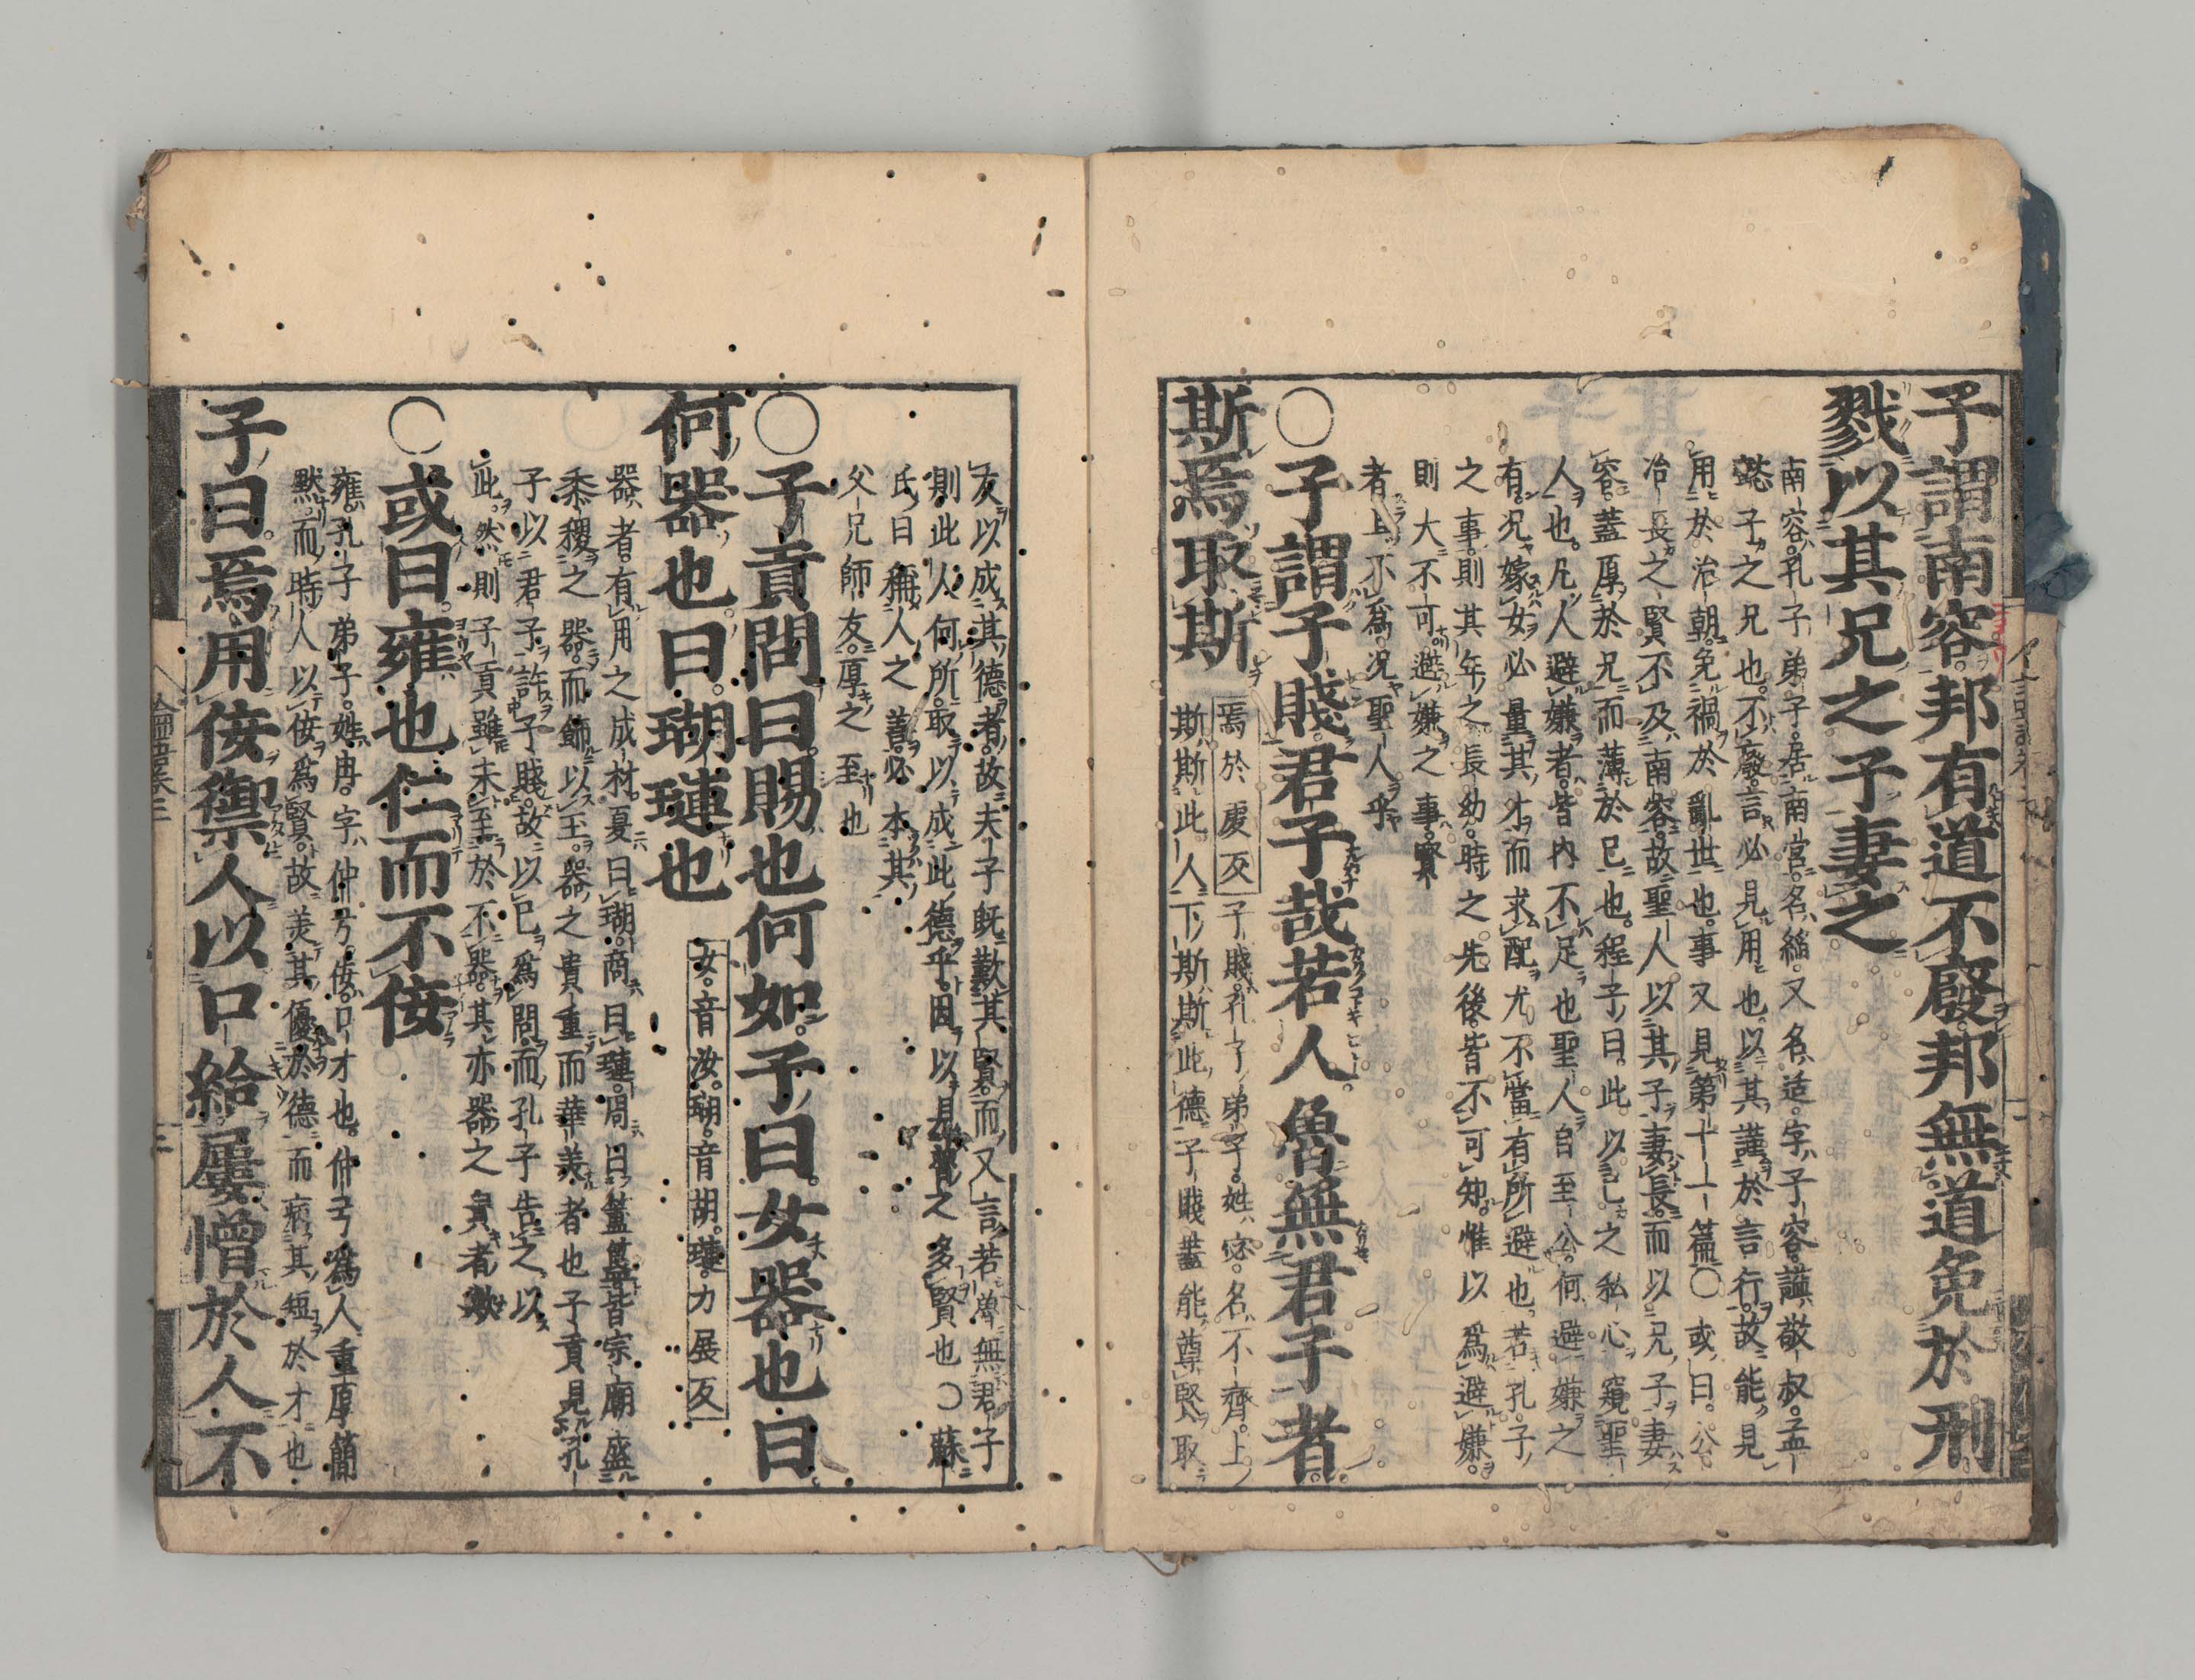 子謂南容邦有道不廢邦無道免於刑
戮以其兄之子妻之
南容孔子弟子居南宮名縚又名适字子容謚敬叔孟
懿子之兄也不廢言必見用也以其謹於言行故能見
用於治朝免禍於亂世也事又見第十一篇〇或曰公
冶長之賢不及南容故聖人以其子妻長而以兄子妻
容蓋厚於兄而薄於己也程子曰此以己之私心窺聖
人也凡人避嫌者皆內不足也聖人自至公何避嫌之
有況嫁女必量其才而求配尤不當有所避也若孔子
之事則其年之長幼時之先後皆不可知惟以為避嫌
則大不可避嫌之事賢
者且不為況聖人乎
〇子謂子賤君子哉若人魯無君子者
斯焉取斯
焉於虔反
子賤孔子弟子姓宓名不齊上
斯斯此人下斯斯此德子賤蓋能尊賢取
友以成其德者故夫子既歎其賢而又言若魯無君子
則此人何所取以成此德乎因以見魯之多賢也〇蘇
氏曰稱人之善必本其
父兄師友厚之至也
〇子貢問曰賜也何如子曰女器也曰
何器也曰瑚璉也
女音汝瑚音胡璉力展反
器者有用之成材夏曰瑚商曰璉周曰簠簋皆宗廟盛
黍稷之器而飾以玉器之貴重而華美者也子貢見孔
子以君子許子賤故以己為問而孔子告之以
此然則子貢雖未至於不器其亦器之貴者歟
〇或曰雍也仁而不佞
雍孔子弟子姓冉字仲弓佞口才也仲弓為人重厚簡
默而時人以佞為賢故美其優於德而病其短於才也
子曰焉用佞禦人以口給屢憎於人不